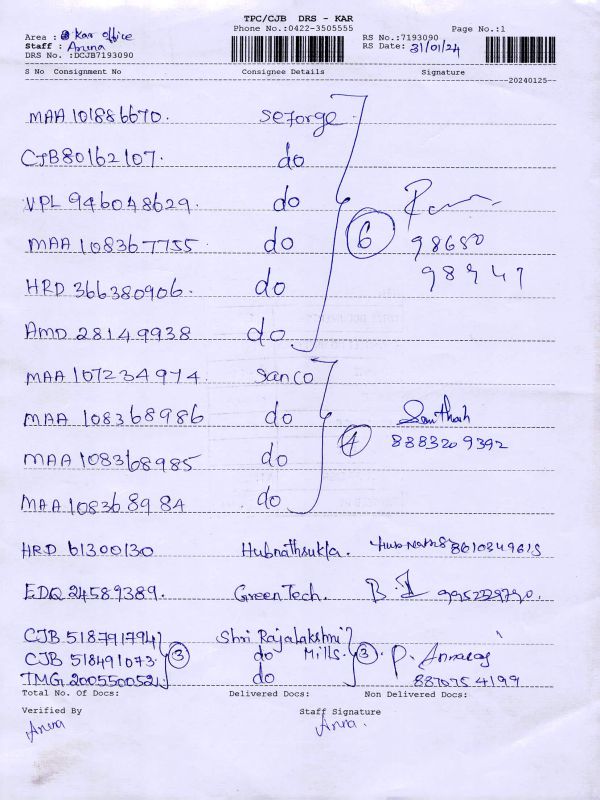 TPC/CJB DRS - KAR
Phone No.:0422-3505555
Page No.:1
Area : Kar office
RS No.:7193090
Staff : Aruna
RS Date: 31/01/24
DRS No. :DCJB7193090
S No Consignment No Consignee Details Signature
20240125
MAA 101886670. Seforge.
CJB80162107. do
VPL 946048629. do
6
MAA 108367755 do
98680
HRD 366380906. do
AMD 28149938 do
MAA 107234974. Sanco
MAA 108368986 do
4
8883209392
MAA 108368985 do
MAA 108368984 do
HRD 61300130 Hubnathsukla. 8610349615
EDQ 24589389. Green Tech.
CJB 518791794 Shri Rajalakshmi
CJB 518491073 3 do Mills. 3 P.
TMG 200550052 do 887075 4199
Total No. Of Docs: Delivered Docs: Non Delivered Docs:
Verified By Staff Signature
Aruna Aruna.